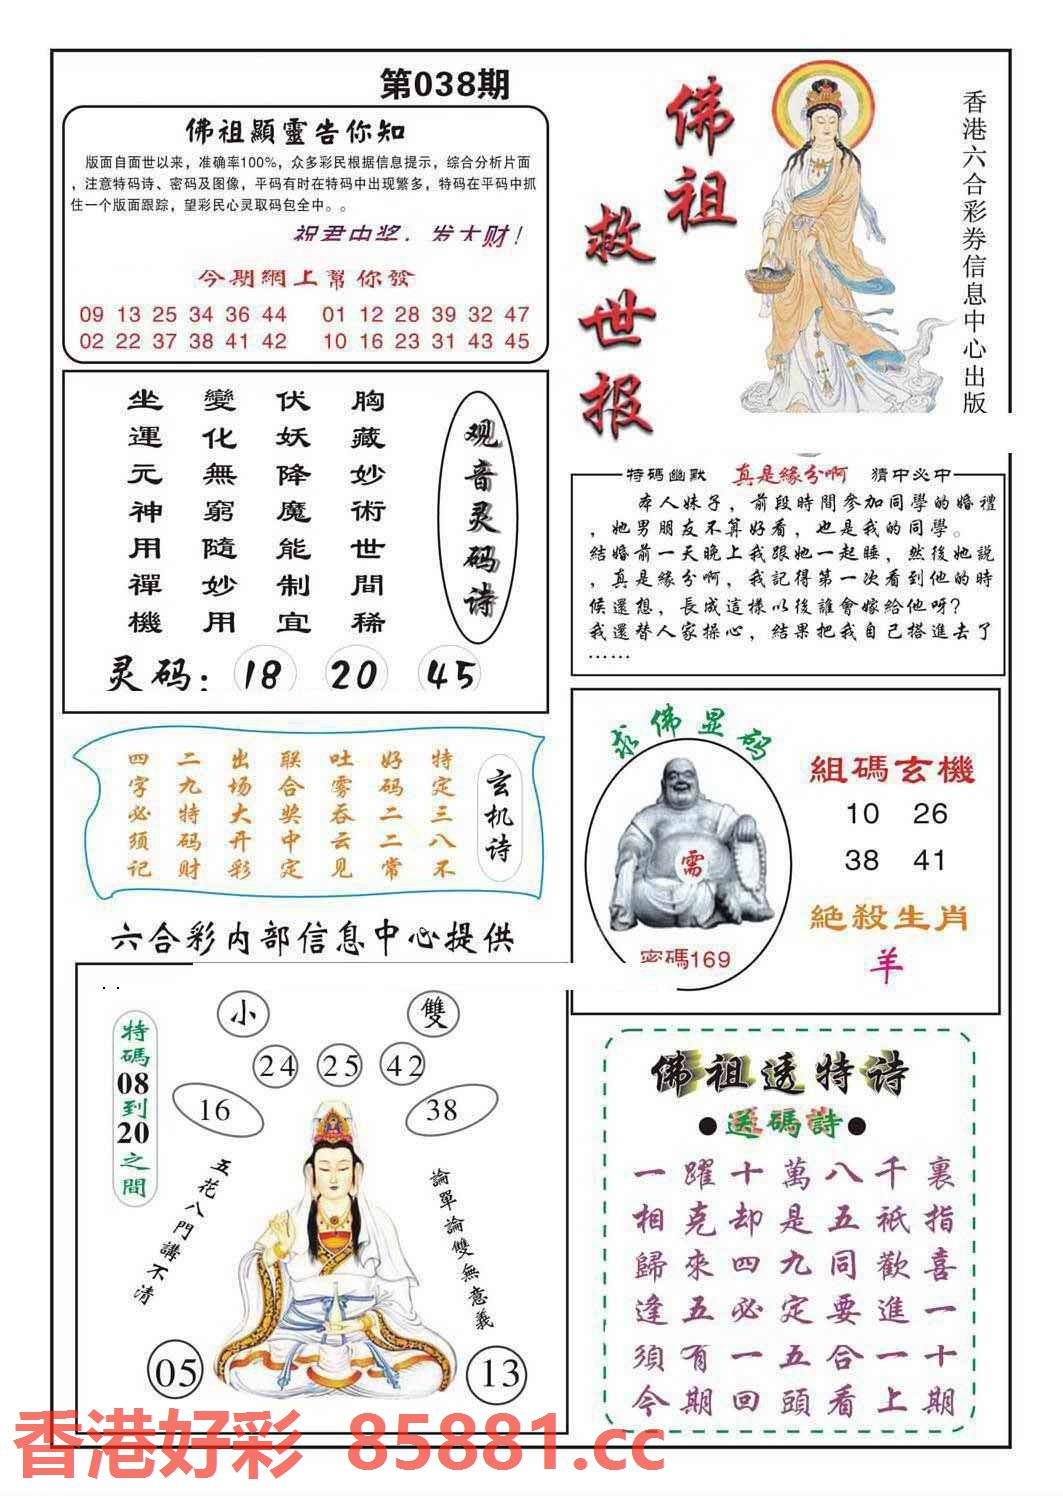 第038期
佛祖顯靈告你知
版面自面世以来，准确率100%，众多彩民根据信息提示，综合分析片面
，注意特码诗、密码及图像，平码有时在特码中出现繁多，特码在平码中抓
住一个版面跟踪，望彩民心灵取码包全中。。
祝君中奖，发大财！
今期網上幫你發
09 13 25 34 36 44 01 12 28 39 32 47
02 22 37 38 41 42 10 16 23 31 43 45
佛祖
救世报
香港六合彩券信息中心出版
胸藏妙術世間稀
伏妖降魔能制宜
變化無窮隨妙用
坐運元神用禪機
观音灵码诗
灵码：18 20 45
特碼幽默 真是緣分啊 猜中必中
本人妹子，前段時間參加同學的婚禮
，她男朋友不算好看，也是我的同學。
結婚前一天晚上我跟她一起睡，然後她説
，真是緣分啊，我記得第一次看到他的時
候還想，長成這樣以後誰會嫁給他呀？
我還替人家操心，結果把我自己搭進去了
……
玄机诗
特定三八不
好码二二常
吐雾吞云见
联合奖中定
出场大开彩
二九特码财
四字必须记
求佛显码
需
密碼169
組碼玄機
10 26
38 41
絕殺生肖
羊
六合彩内部信息中心提供
小 雙
24 25 42
16 38
特碼08到20之間
五花八門講不清
論單論雙無意義
05 13
佛祖透特诗
●送碼詩●
一躍十萬八千裏
相克却是五祇指
歸來四九同歡喜
逢五必定要進一
須有一五合一十
今期回頭看上期
香港好彩 85881.cc